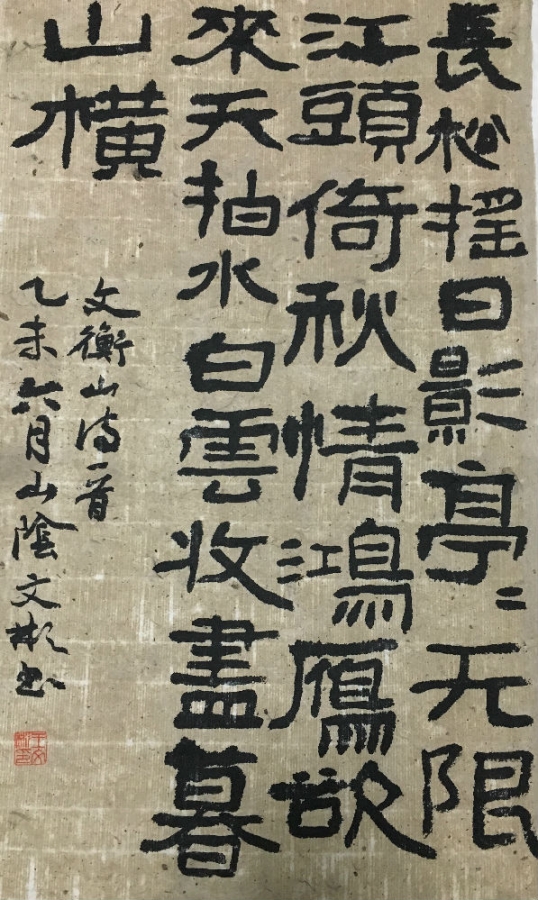 長松搖日影亭〻无限
江頭倚秋情鴻鴈欲
來天拍水白雲收盡暮
山橫
文衡山詩一首
乙未六月山陰文彬書